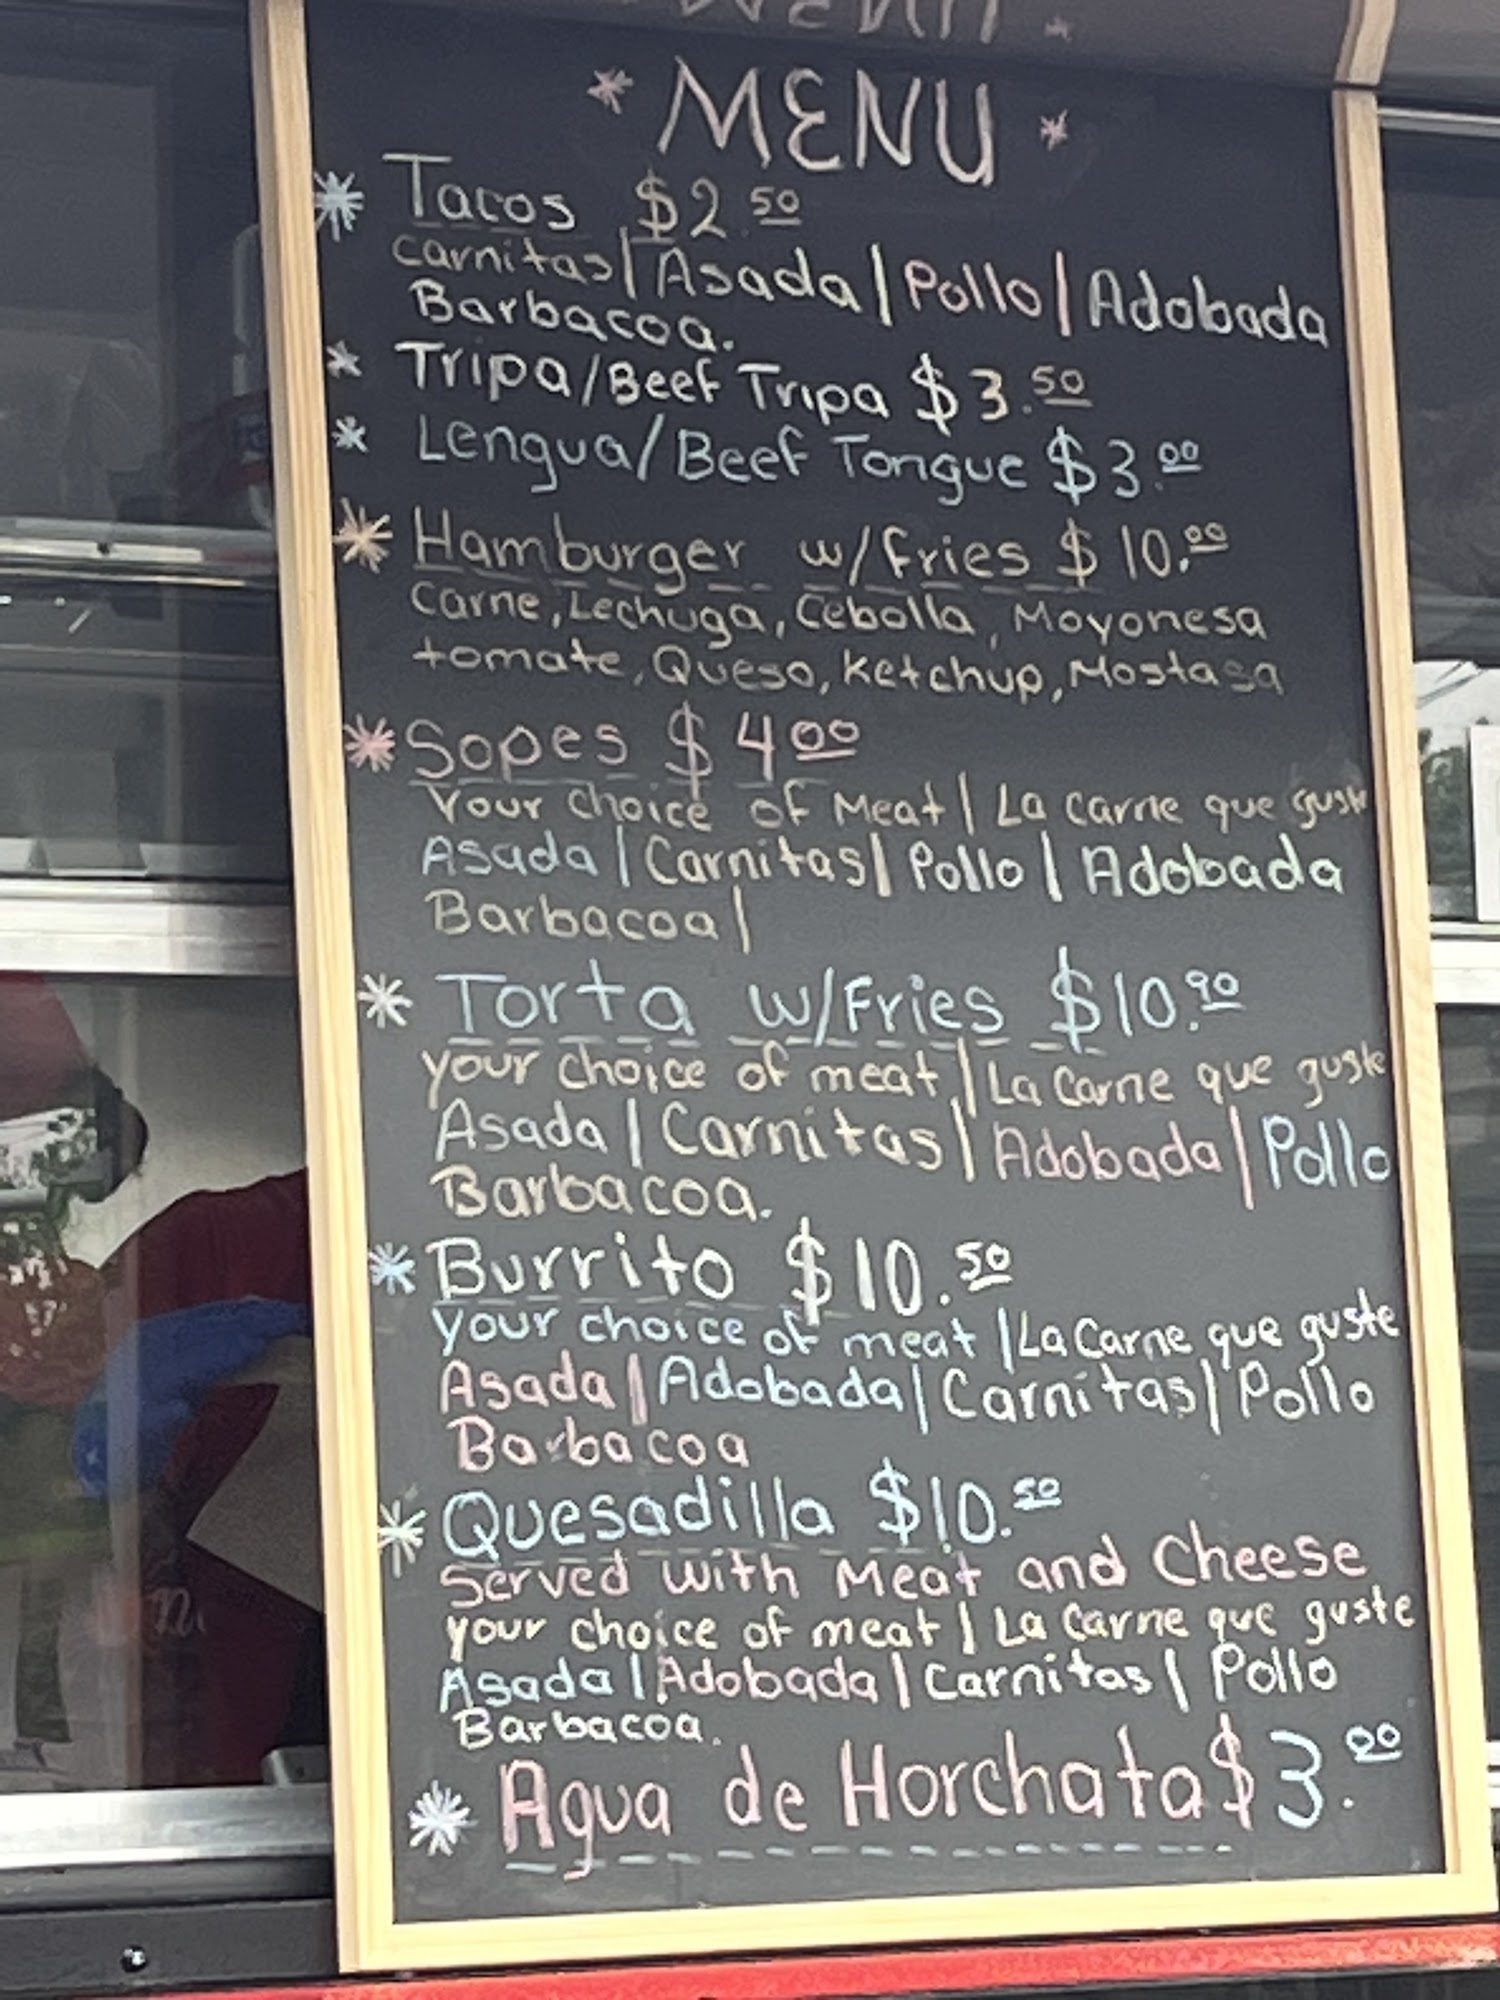 * MENU *
* Tacos $2.50
Carnitas | Asada | Pollo | Adobada
Barbacoa.
* Tripa/Beef Tripa $3.50
* Lengua/Beef Tongue $3.00
* Hamburger w/fries $10.00
Carne, Lechuga, Cebolla, Moyonesa
tomate, Queso, Ketchup, Mostasa
* Sopes $4.00
Your Choice of Meat | La Carne que guste
Asada | Carnitas | Pollo | Adobada
Barbacoa |
* Torta w/Fries $10.90
your choice of meat | La Carne que guste
Asada | Carnitas | Adobada | Pollo
Barbacoa.
* Burrito $10.50
your choice of meat | La Carne que guste
Asada | Adobada | Carnitas | Pollo
Barbacoa
* Quesadilla $10.50
Served with Meat and Cheese
your choice of meat | La Carne que guste
Asada | Adobada | Carnitas | Pollo
Barbacoa.
* Agua de Horchata $3.00